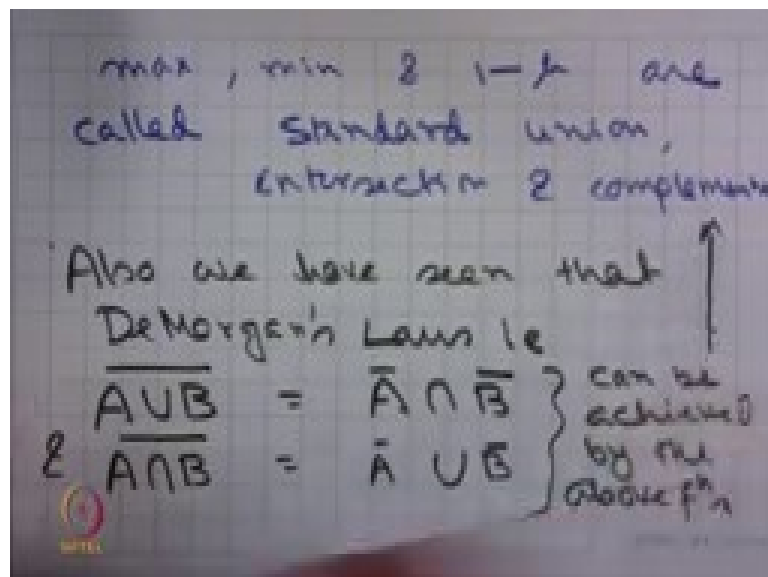 max, min & 1-μ are
called standard union,
intersection & complement
Also we have seen that
DeMorgan's Laws ie
\overline{A∪B} = \overline{A} ∩ \overline{B} } can be
& \overline{A∩B} = \overline{A} ∪ \overline{B} achieved
by the
above fⁿs
NPTEL